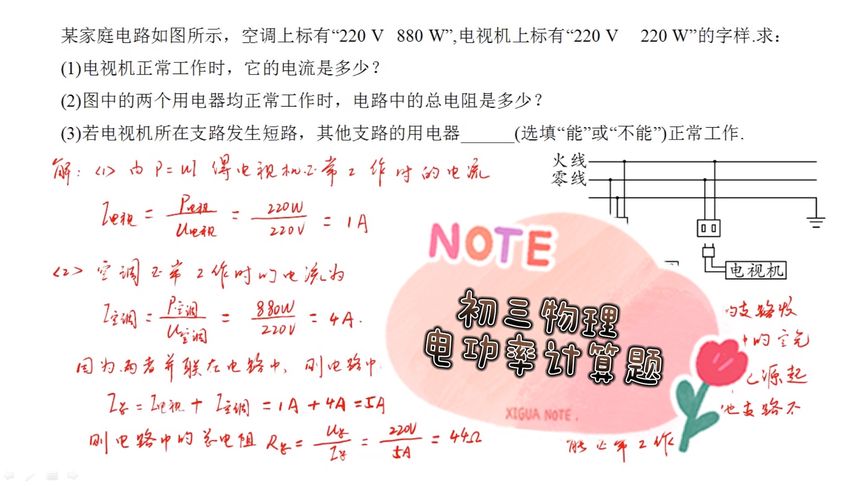 某家庭电路如图所示，空调上标有“220 V 880 W”,电视机上标有“220 V 220 W”的字样.求：
(1)电视机正常工作时，它的电流是多少？
(2)图中的两个用电器均正常工作时，电路中的总电阻是多少？
(3)若电视机所在支路发生短路，其他支路的用电器______(选填“能”或“不能”)正常工作.
解：<1> 由 P=UI 得电视机正常工作时的电流
火线
零线
I电视 = P电视/U电视 = 220W/220V = 1A
NOTE
电视机
<2> 空调正常工作时的电流为
I空调 = P空调/U空调 = 880W/220V = 4A.
初三物理
电功率计算题
的支路发
中的空气
因为两者并联在电路中，则电路中
源起
I总 = I电视 + I空调 = 1A + 4A = 5A
他支路不
XIGUA NOTE.
则电路中的总电阻 R总 = U总/I总 = 220V/5A = 44Ω
能正常工作